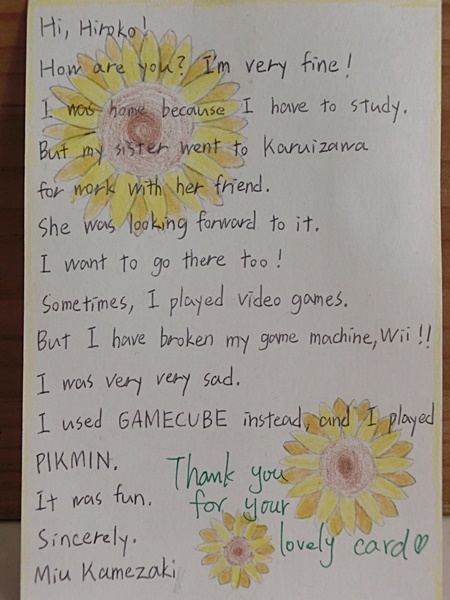 Hi, Hiroko!
How are you? I'm very fine!
I was home because I have to study.
But my sister went to Karuizawa
for work with her friend.
She was looking forward to it.
I want to go there too!
Sometimes, I played video games.
But I have broken my game machine, Wii!!
I was very very sad.
I used GAMECUBE instead, and I played
PIKMIN.
It was fun.
Sincerely.
Miu Kamezaki
Thank you
for your
lovely card♡